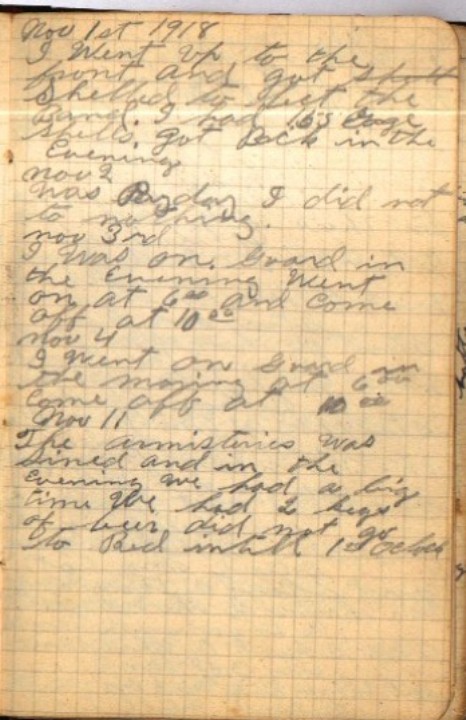 Nov 1st 1918
I Went Up to the
front and got
Shelled to beet the
Band. I had 155
shells got Back in the
Evening
nov 2
Was Payday I did not
to nothing.
nov 3rd
I Was on Guard in
the Evening Went
on at 6 00 and Come
off at 10 00
nov 4
I Went on Guard in
the morning at 6 00
Come off at 10 00
Nov 11
The armisteries was
Sined and in the
Evening We had a big
time We had 2 kegs
of beer did not go
to Bed intill 1 00 Oclock